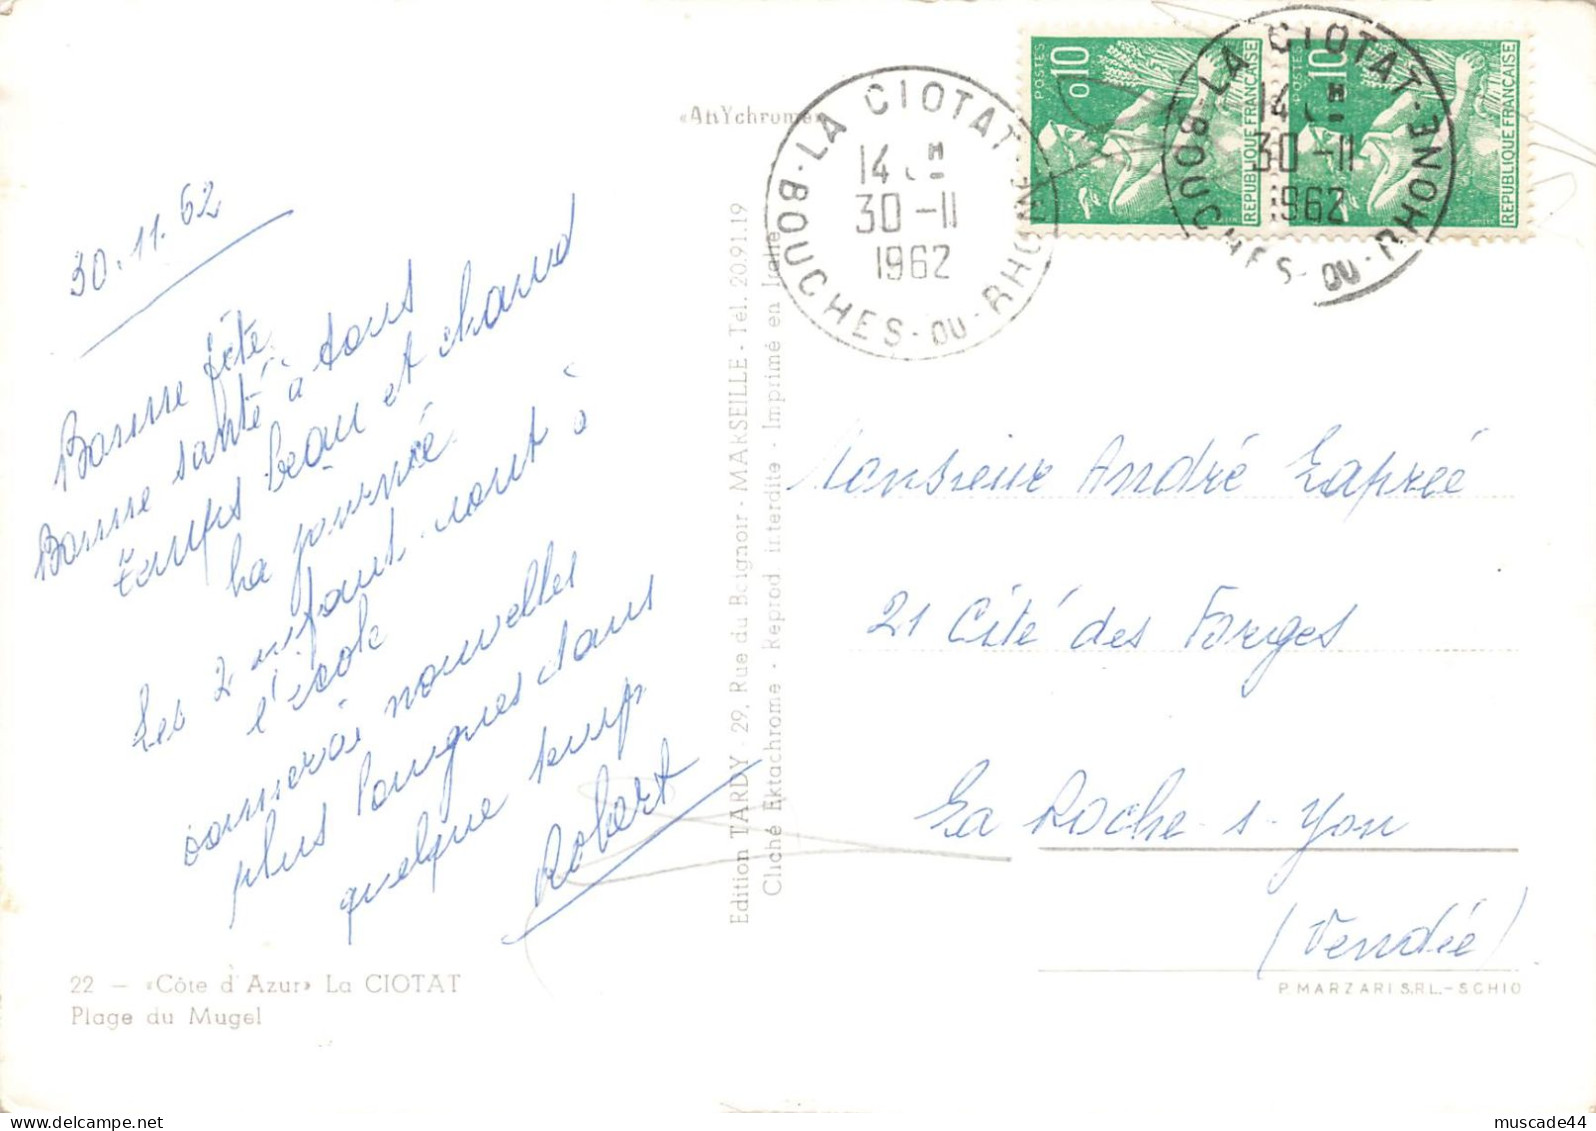 «AnYchrome»
LA CIOTAT
BOUCHES-DU-RHONE
14 H
30-11
1962
POSTES
0,10
REPUBLIQUE FRANÇAISE
LA CIOTAT-
BOUCHES-DU-RHONE
14 H
30-11
1962
POSTES
0,10
REPUBLIQUE FRANÇAISE
30.11.62
Bonne fête.
Bonne santé à tous
temps beau et chaud
la journée
Les 2 enfants vont à
l'école
donnerai nouvelles
plus longues dans
quelque temps
Robert
22 — «Côte d'Azur» La CIOTAT
Plage du Mugel
Edition TARDY - 29, Rue du Baignoir - MARSEILLE - Tél. 20.91.19
Cliché Ektachrome - Reprod. interdite - Imprimé en Italie
Monsieur André Lapréé
21 Cité des Forges
La Roche-s-Yon
(Vendée)
P. MARZARI S.R.L. - SCHIO
muscade44